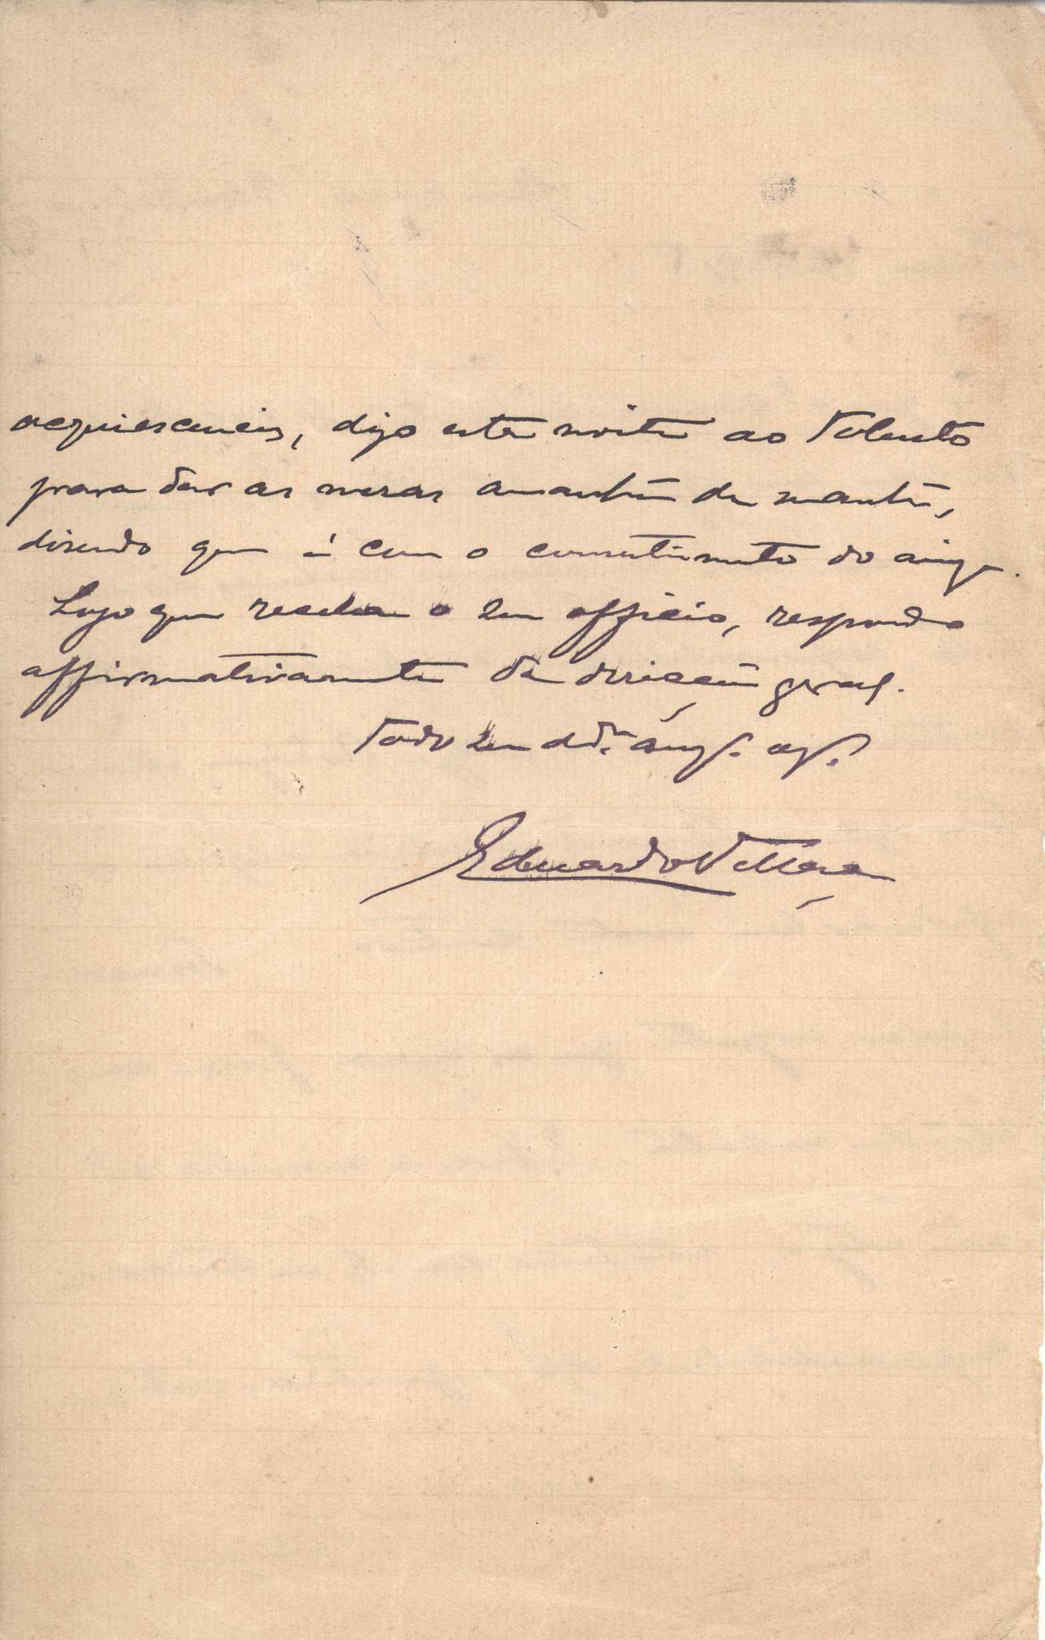 acquiescencia, digo esta noite ao Tolentº
para dar as mesas amanhã de manhã,
dizendo que é com o consentimento do amigo.
Logo que receba o seu officio, respondo
affirmativamente da direcção geral.
Todo seu
Eduardo Villaça